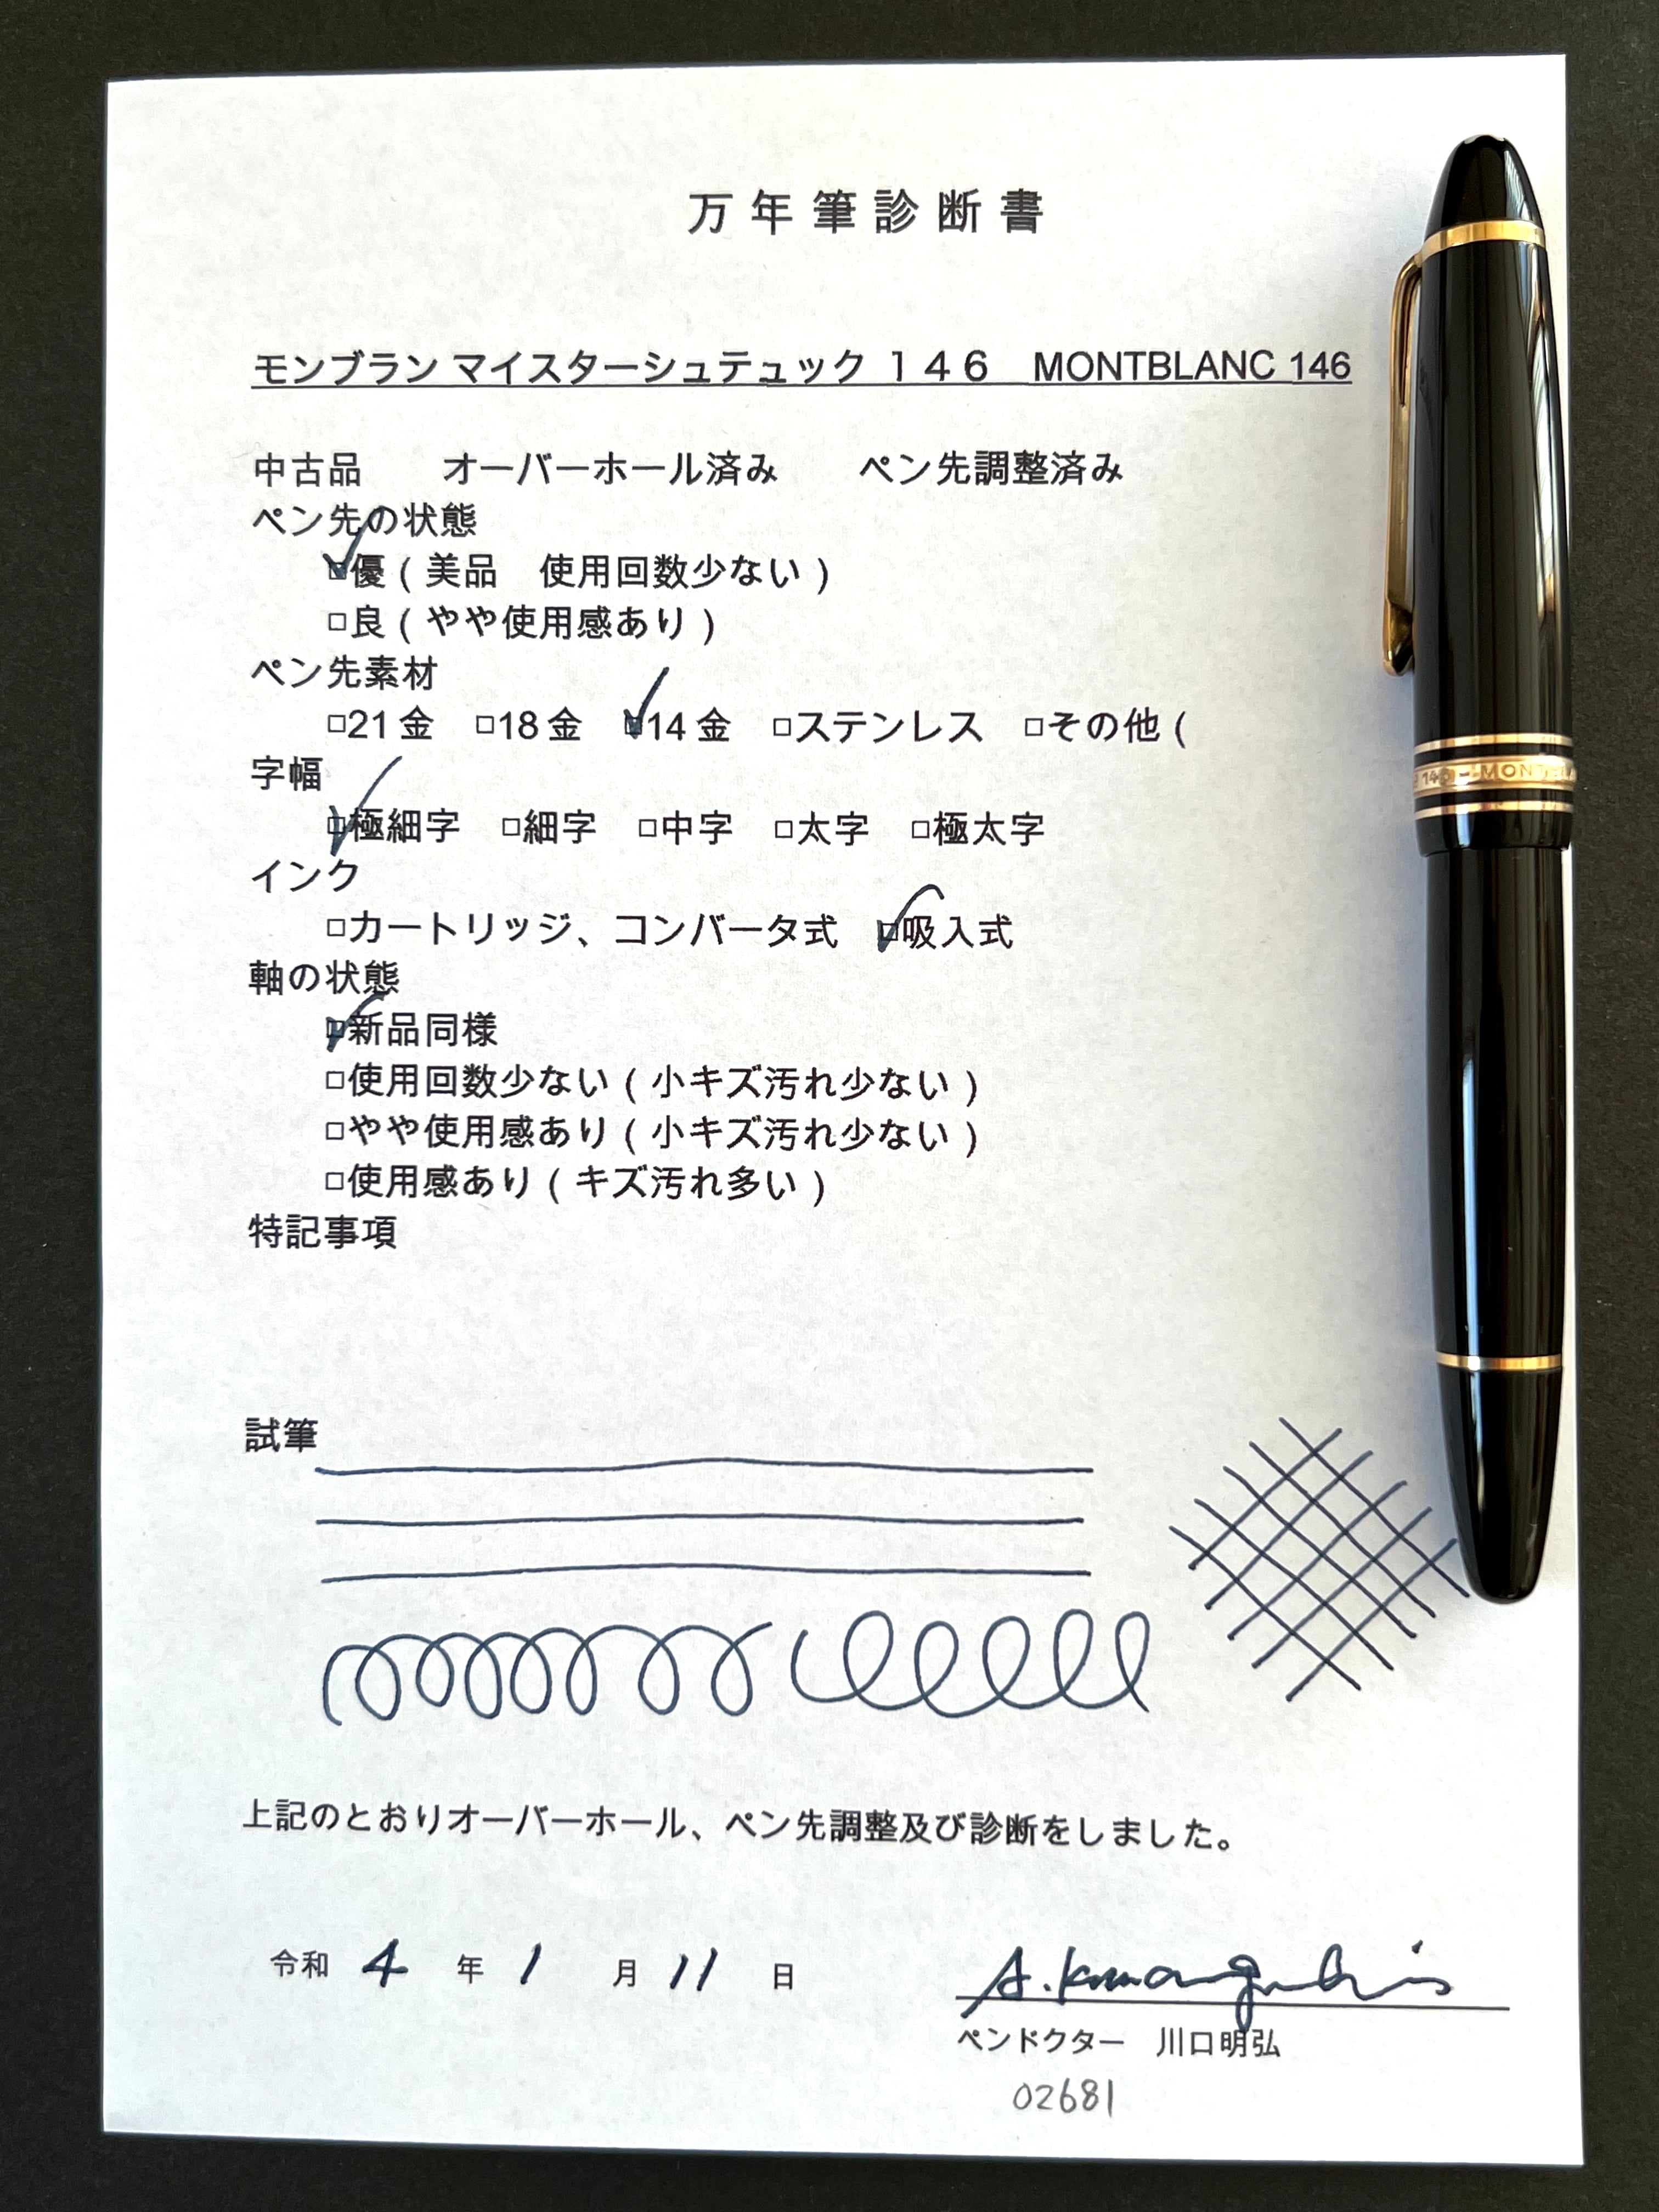 万年筆診断書
モンブラン マイスターシュテュック 146　MONTBLANC 146
中古品　オーバーホール済み　ペン先調整済み
ペン先の状態
☑優(美品　使用回数少ない)
□良(やや使用感あり)
ペン先素材
□21金　□18金　☑14金　□ステンレス　□その他(
字幅
☑極細字　□細字　□中字　□太字　□極太字
インク
□カートリッジ、コンバータ式　☑吸入式
軸の状態
☑新品同様
□使用回数少ない(小キズ汚れ少ない)
□やや使用感あり(小キズ汚れ少ない)
□使用感あり(キズ汚れ多い)
特記事項
試筆
上記のとおりオーバーホール、ペン先調整及び診断をしました。
令和 4 年 1 月 11 日
A. Kawaguchi
ペンドクター　川口明弘
02681
146 - MONT